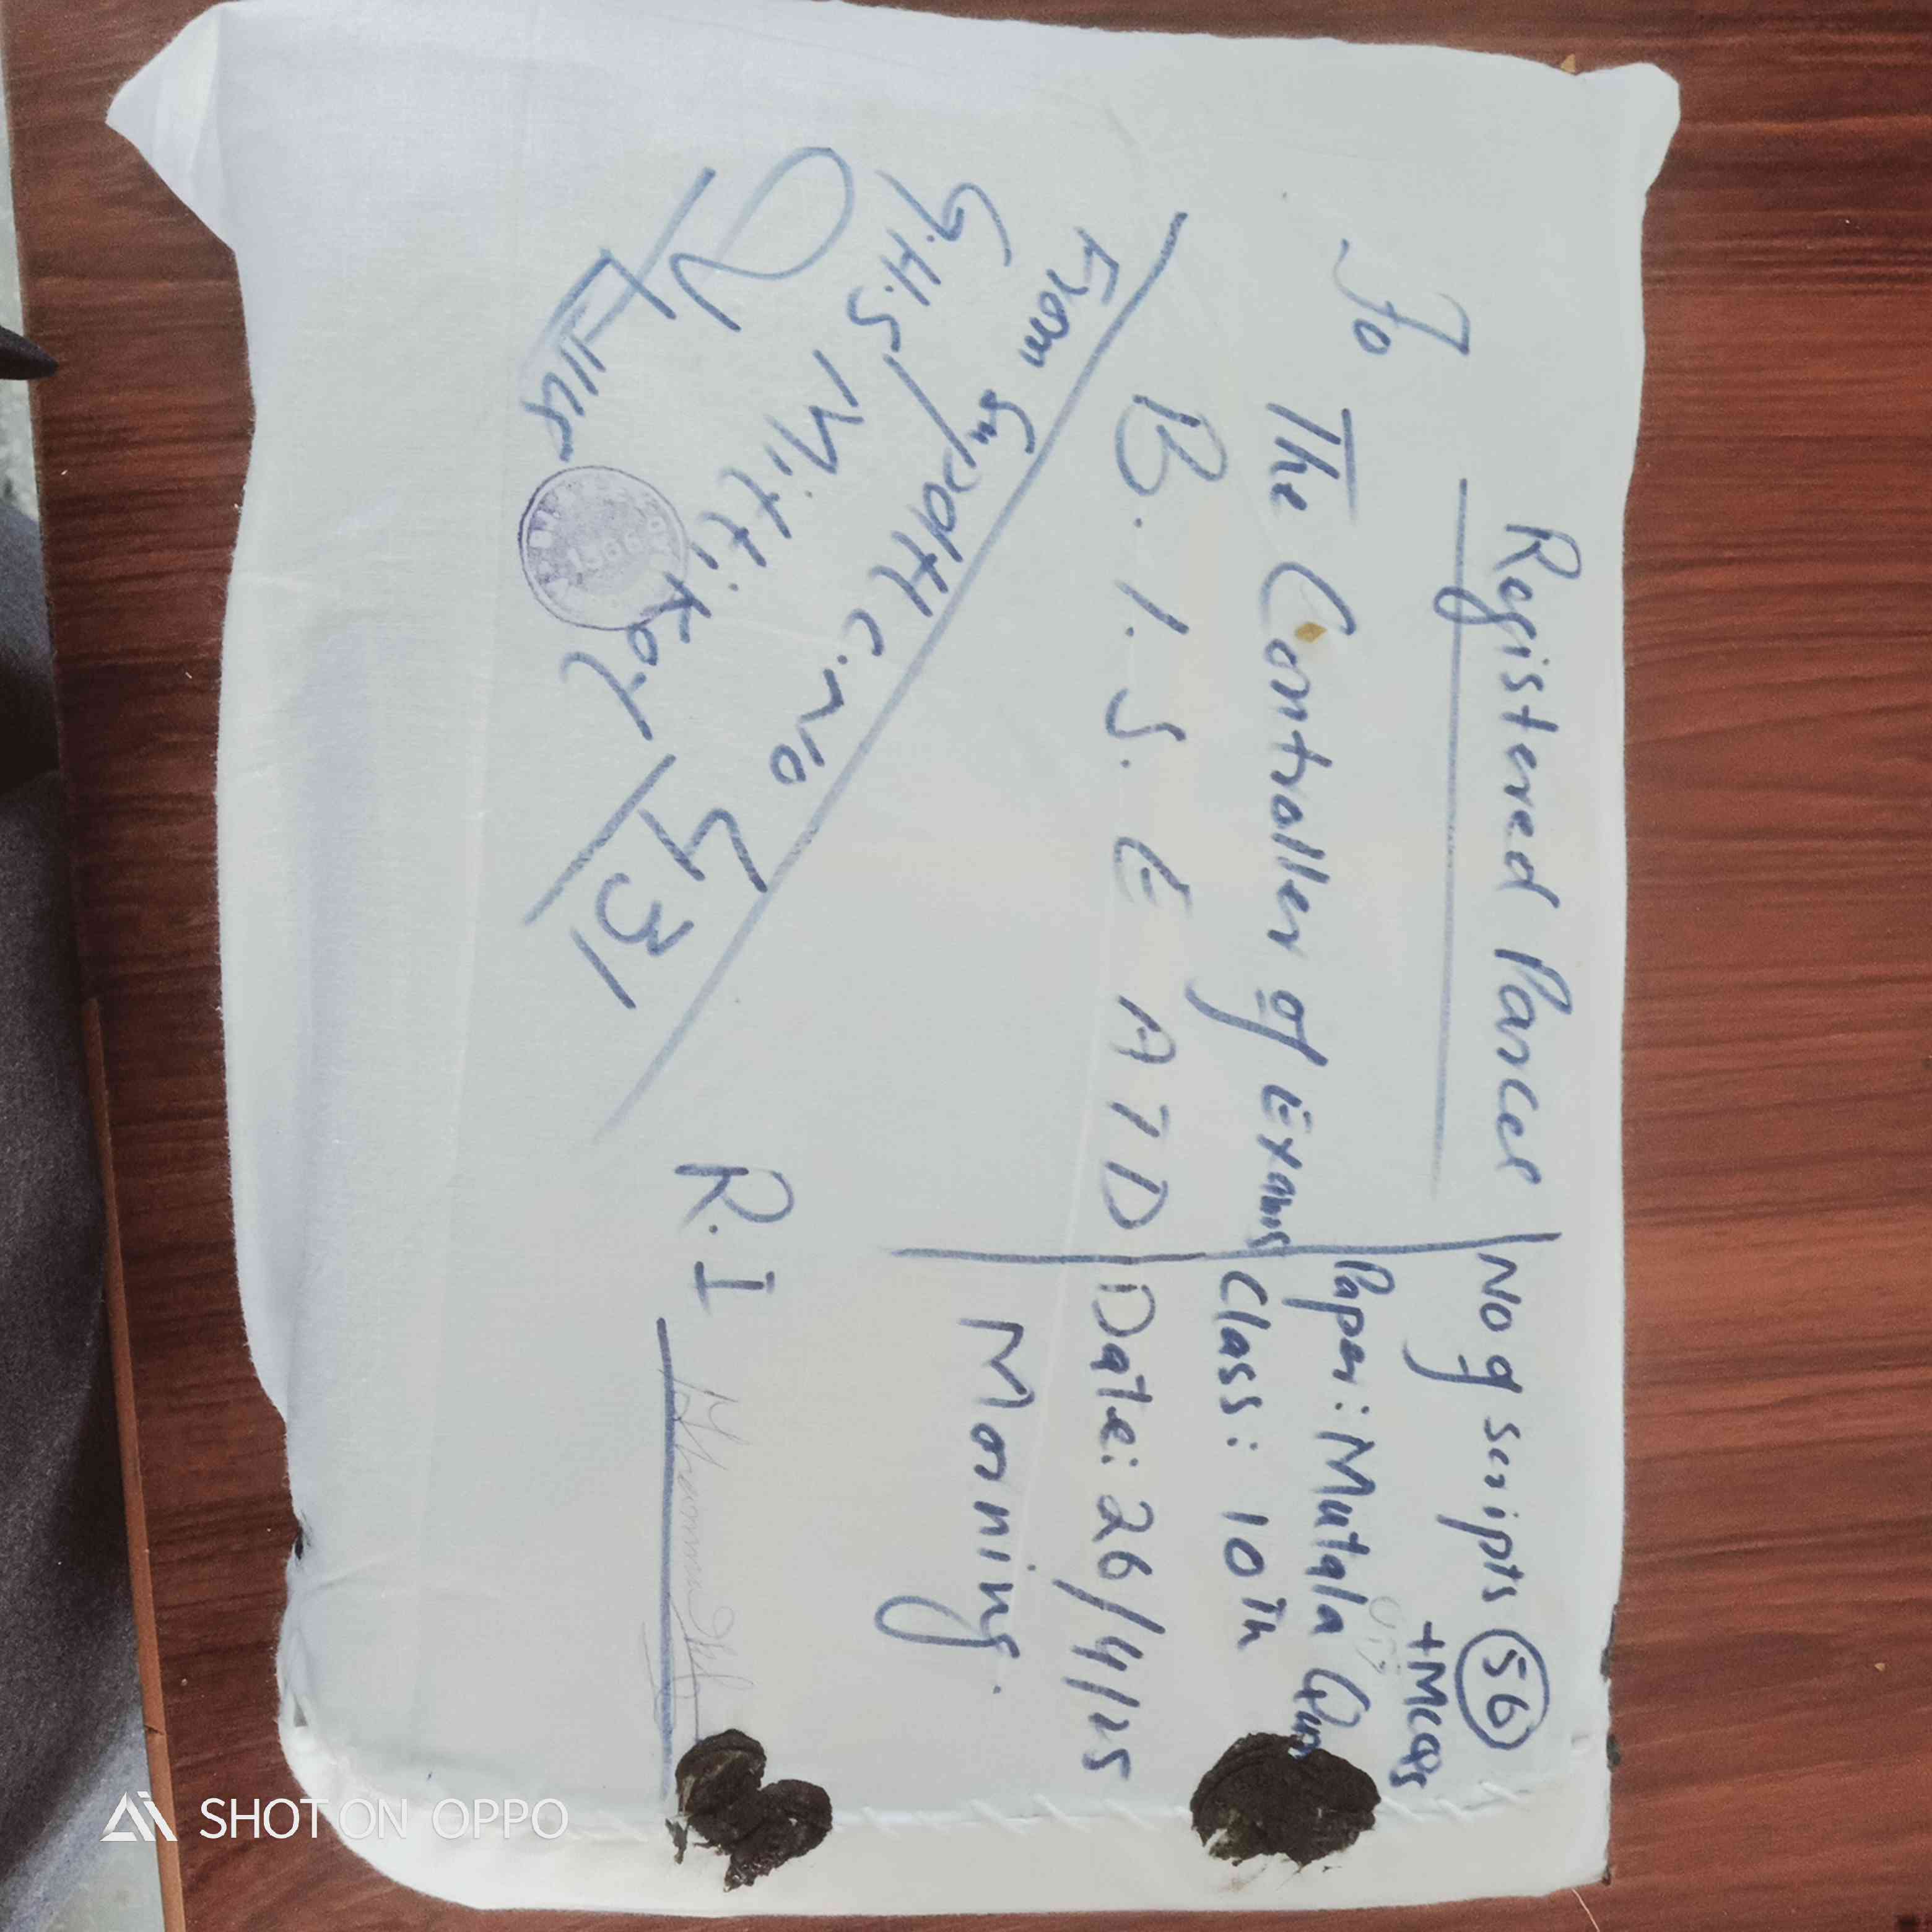 Registered Parcel
To
The Controller of Exams
B.I.S.E ATD
No of scripts 56
+ Mcqs
Paper: Mutala Qur
Class: 10th
Date: 26/4/25
Morning.
From Supdtt C.No
G.H.S Mittikot 431
R.I
SHOT ON OPPO